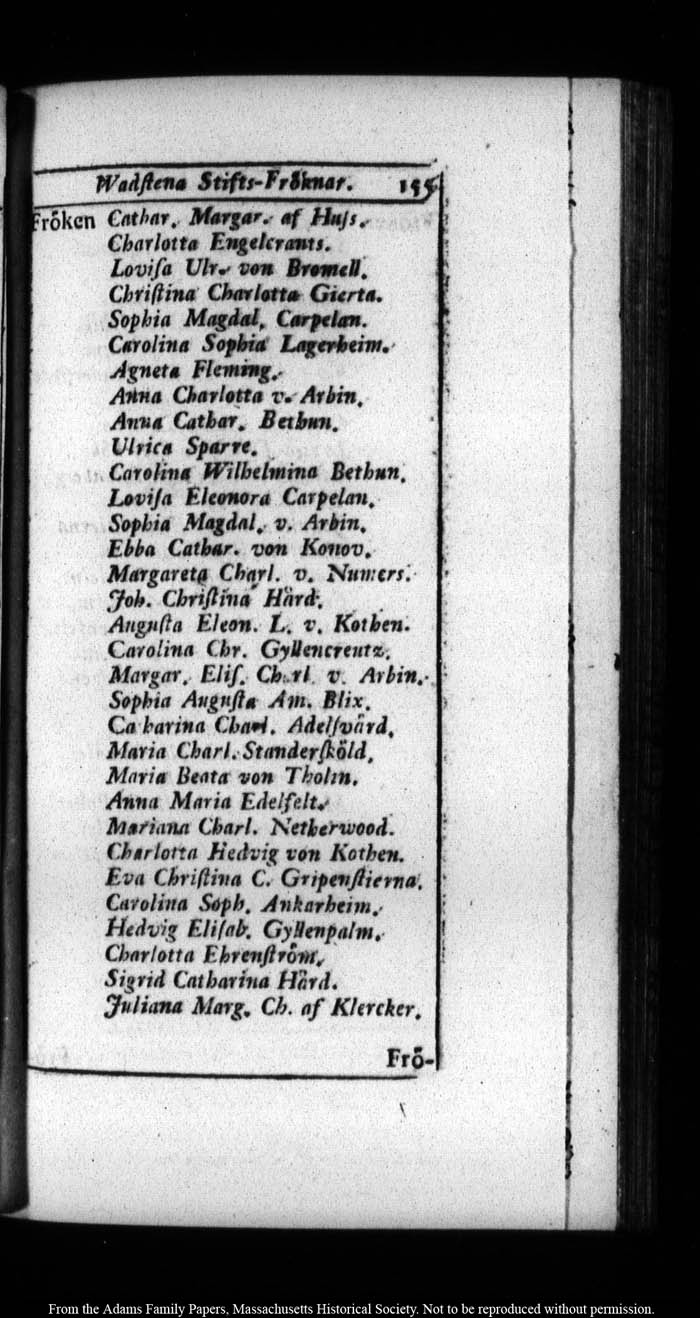 Wadſtena Stifts-Frôknar. 155
Frôken Cathar. Margar. af Huſs.
Charlotta Engelcrants.
Loviſa Ulr. von Bromell.
Chriſtina Charlotta Gierta.
Sophia Magdal. Carpelan.
Carolina Sophia Lagerheim.
Agneta Fleming.
Anna Charlotta v. Arbin.
Anna Cathar. Bethun.
Ulrica Sparre.
Carolina Wilhelmina Bethun.
Loviſa Eleonora Carpelan.
Sophia Magdal. v. Arbin.
Ebba Cathar. von Konov.
Margareta Charl. v. Numers.
Joh. Chriſtina Hård.
Auguſta Eleon. L. v. Kothen.
Carolina Chr. Gyllencreutz.
Margar. Eliſ. Charl. v. Arbin.
Sophia Auguſta Am. Blix.
Catharina Charl. Adelſvärd.
Maria Charl. Standerſköld.
Maria Beata von Tholin.
Anna Maria Edelfelt.
Mariana Charl. Netherwood.
Charlotta Hedvig von Kothen.
Eva Chriſtina C. Gripenſtierna.
Carolina Soph. Ankarheim.
Hedvig Eliſab. Gyllenpalm.
Charlotta Ehrenſtröm.
Sigrid Catharina Hård.
Juliana Marg. Ch. af Klercker.
Frö-
From the Adams Family Papers, Massachusetts Historical Society. Not to be reproduced without permission.